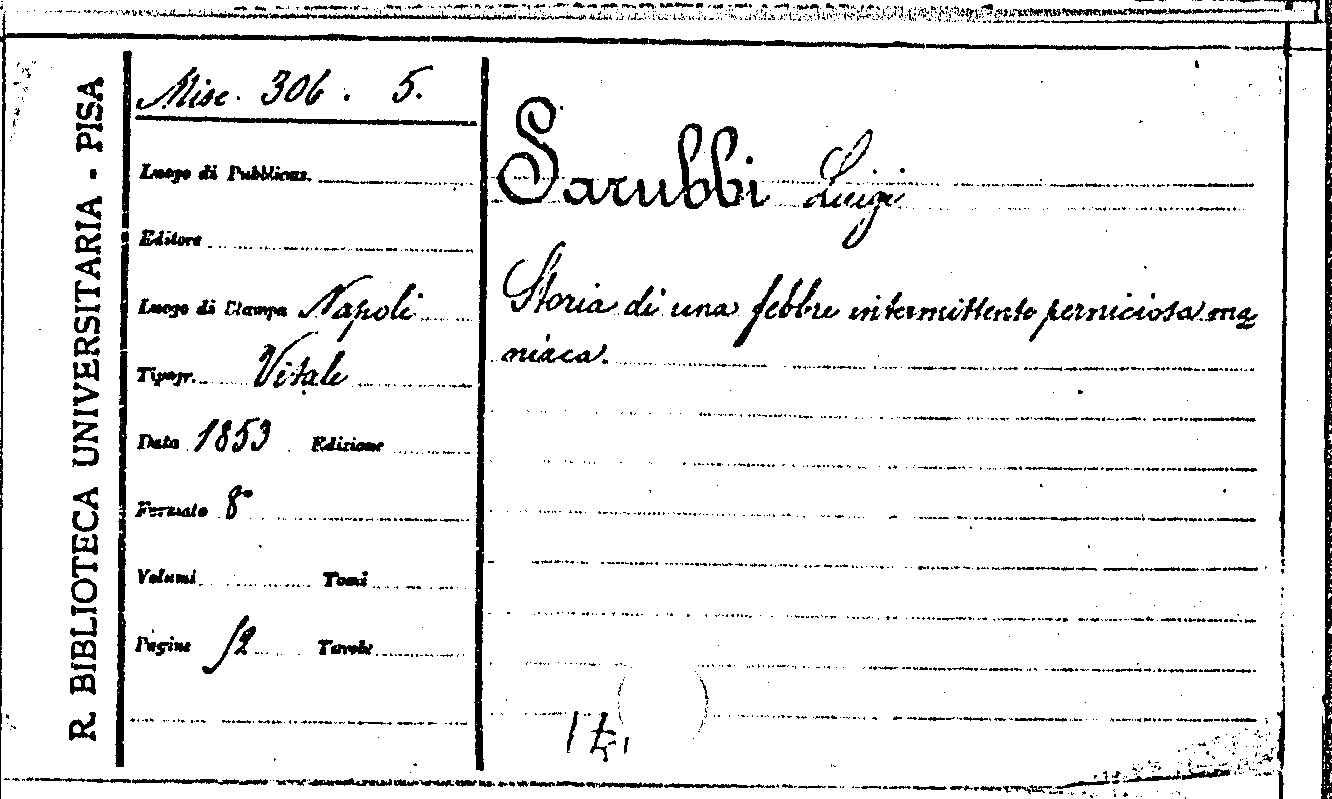 R. BIBLIOTECA UNIVERSITARIA - PISA
Misc. 306. 5.
Luogo di Pubblicaz.
Editore
Luogo di Stampa Napoli
Tipogr. Vitale
Data 1853 Edizione
Formato 8°
Volumi Tomi
Pagine 12 Tavole
Sarubbi Luigi
Storia di una febbre intermittente perniciosa ma
niaca.